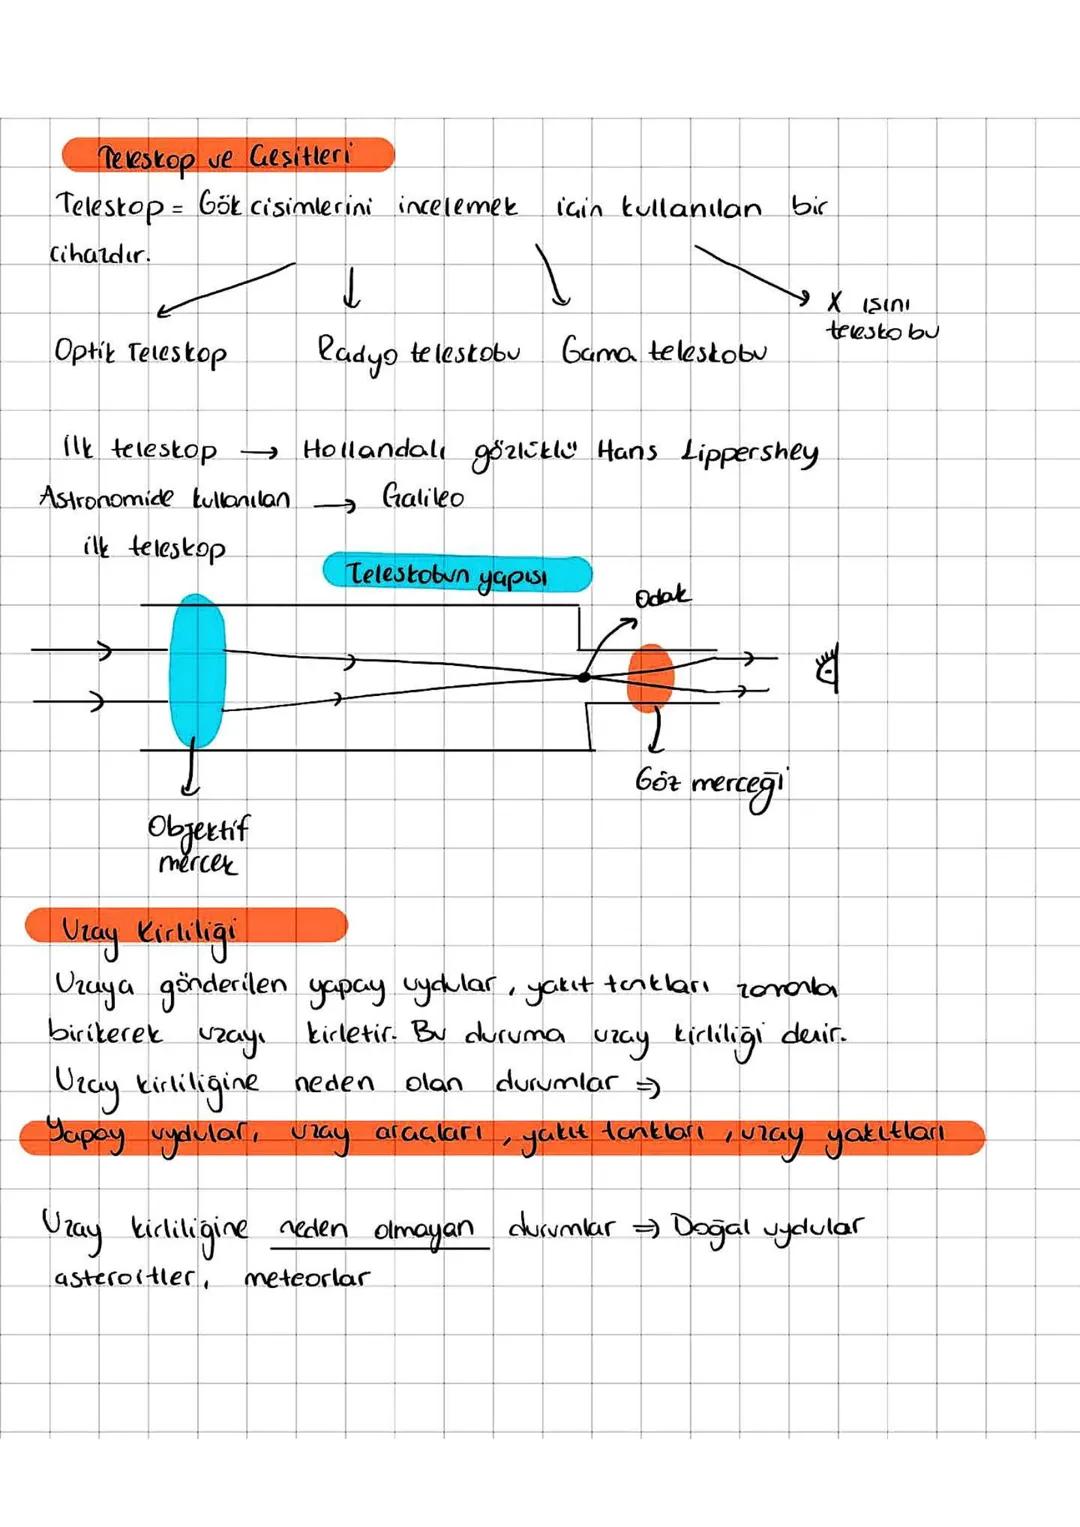 Teleskop ve Çeşitleri
Teleskop = Gök cisimlerini incelemek için kullanılan bir
cihazdır.
Optik Teleskop
Radyo teleskobu
Gama teleskobu
X ışını
teleskobu
İlk teleskop → Hollandalı gözlüklü Hans Lippershey
Astronomide kullanılan → Galileo
ilk teleskop
Teleskobun yapısı
Odak
Göz merceği
Objektif
mercek
Uzay Kirliliği
Uzaya gönderilen yapay uydular, yakıt tankları zamanla
birikerek uzayı kirletir. Bu duruma uzay kirliliği denir.
Uzay kirliliğine neden olan durumlar ⇒
Yapay uydular, uzay araçları, yakıt tankları, uzay yakıtları
Uzay kirliliğine neden olmayan durumlar ⇒ Doğal uydular
asteroitler, meteorlar